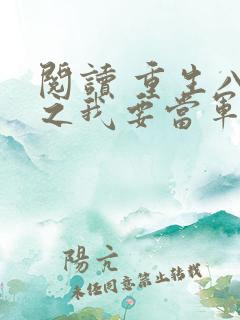 閱讀 重生八
之我要當軍
陽亢
未經同意禁止轉載